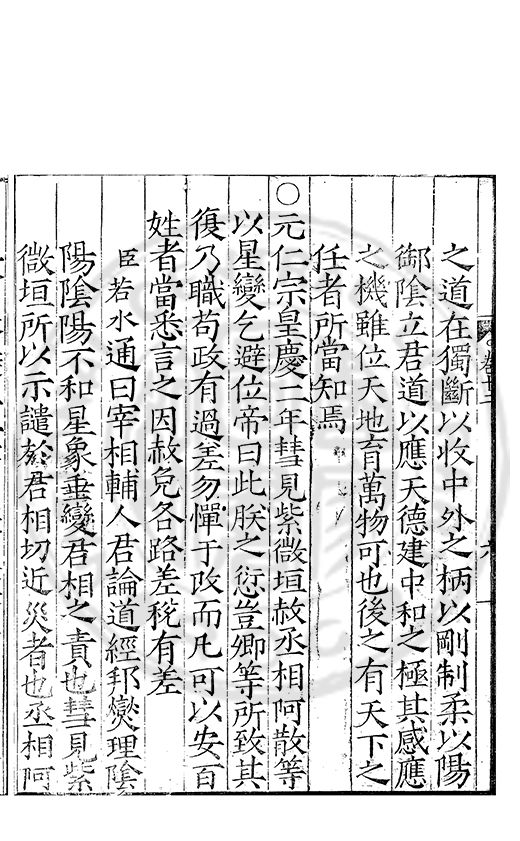 之道在獨斷以收中外之柄以剛制柔以陽
御陰立君道以應天德建中和之極其感應
之機雖位天地育萬物可也後之有天下之
任者所當知焉
○元仁宗皇慶二年彗見紫微垣赦丞相阿散等
以星變乞避位帝曰此朕之愆豈卿等所致其
復乃職苟政有過差勿憚于改而凡可以安百
姓者當悉言之因赦免各路差稅有差
臣若水通曰宰相輔人君論道經邦燮理陰
陽陰陽不和星象垂變君相之責也彗見紫
微垣所以示譴於君相切近災者也丞相阿